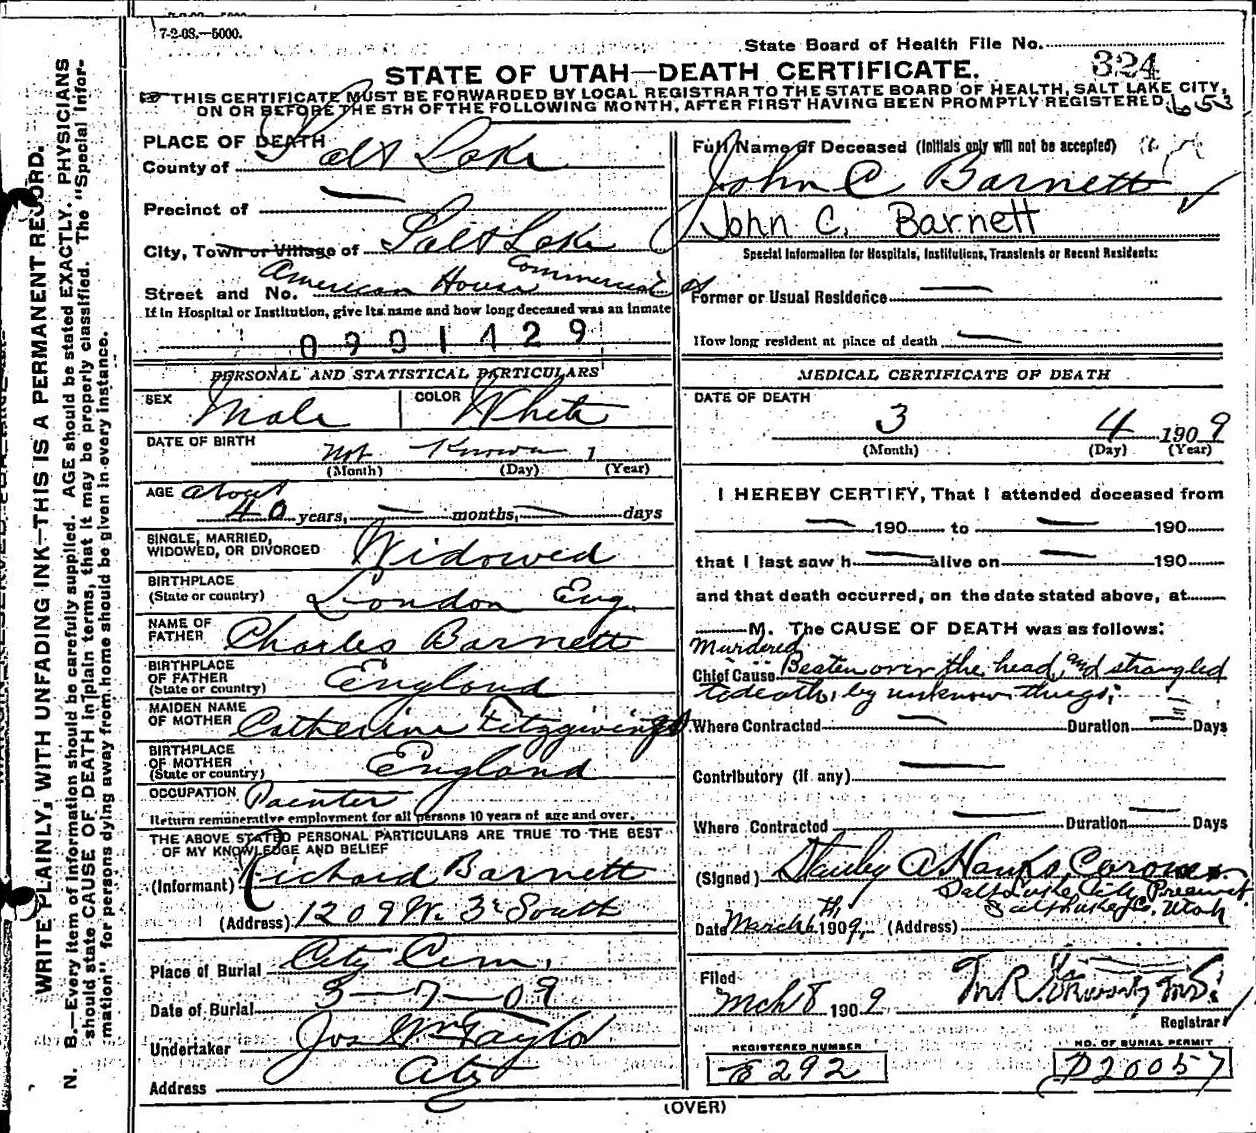 7-2-08.—5000.
State Board of Health File No.
324
STATE OF UTAH—DEATH CERTIFICATE.
THIS CERTIFICATE MUST BE FORWARDED BY LOCAL REGISTRAR TO THE STATE BOARD OF HEALTH, SALT LAKE CITY,
ON OR BEFORE THE 5TH OF THE FOLLOWING MONTH, AFTER FIRST HAVING BEEN PROMPTLY REGISTERED.
653
PLACE OF DEATH
County of Salt Lake
Precinct of —
City, Town or Village of Salt Lake
Street and No. American House Commercial St
If in Hospital or Institution, give its name and how long deceased was an inmate
0901429
PERSONAL AND STATISTICAL PARTICULARS
SEX Male COLOR White
DATE OF BIRTH Not Known 1
(Month) (Day) (Year)
AGE about
40 years, — months, — days
SINGLE, MARRIED,
WIDOWED, OR DIVORCED Widowed
BIRTHPLACE
(State or country) London Eng.
NAME OF
FATHER Charles Barnett
BIRTHPLACE
OF FATHER
(State or country) England
MAIDEN NAME
OF MOTHER Catherine Fitzgivings
BIRTHPLACE
OF MOTHER
(State or country) England
OCCUPATION Painter
Return remunerative employment for all persons 10 years of age and over.
THE ABOVE STATED PERSONAL PARTICULARS ARE TRUE TO THE BEST
OF MY KNOWLEDGE AND BELIEF
(Informant) Richard Barnett
(Address) 1209 W. 3d South
Place of Burial City Cem.
Date of Burial 3-7-09
Undertaker Jos Wm Taylor
Address City
Full Name of Deceased (Initials only will not be accepted)
John C Barnett
John C. Barnett
Special Information for Hospitals, Institutions, Transients or Recent Residents:
Former or Usual Residence —
How long resident at place of death —
MEDICAL CERTIFICATE OF DEATH
DATE OF DEATH
3 4 1909
(Month) (Day) (Year)
I HEREBY CERTIFY, That I attended deceased from
— 190 to — 190
that I last saw h — alive on — 190
and that death occurred, on the date stated above, at
M. The CAUSE OF DEATH was as follows:
Murdered
Chief Cause Beaten over the head and strangled
to death, by unknown thugs;
Where Contracted — Duration — Days
Contributory (if any) —
Where Contracted — Duration — Days
(Signed) Stanley A Hanks, Coroner
Salt Lake City Precinct
Salt Lake Co. Utah
Date March 6th 1909. (Address)
Filed
Mch 8 1909
Registrar
REGISTERED NUMBER
E 292
NO. OF BURIAL PERMIT
D20057
(OVER)
WRITE PLAINLY, WITH UNFADING INK—THIS IS A PERMANENT RECORD.
N. B.—Every item of information should be carefully supplied. AGE should be stated EXACTLY. PHYSICIANS
should state CAUSE OF DEATH in plain terms, that it may be properly classified. The "Special Infor-
mation" for persons dying away from home should be given in every instance.